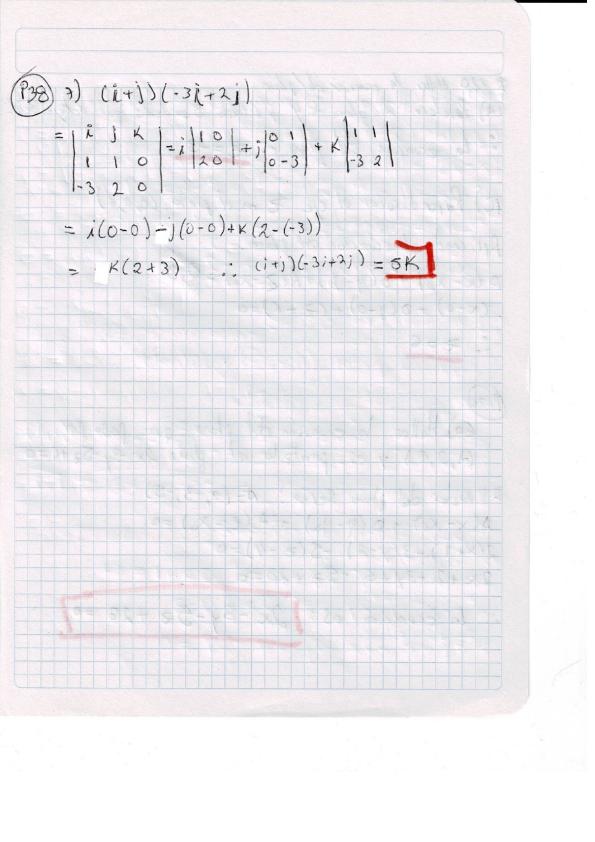 P38 7) (i+j)(-3i+2j)
= |i j k; 1 1 0; -3 2 0| = i |1 0; 2 0| + j |0 1; 0 -3| + k |1 1; -3 2|
= i(0-0) - j(0-0) + k(2-(-3))
= k(2+3) ∴ (i+j)(-3i+2j) = 5k